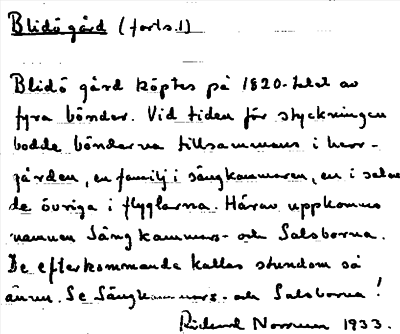 Blidö gård (forts.1)
Blidö gård köptes på 1820-talet av
fyra bönder. Vid tiden för styckningen
bodde bönderna tillsammans i herr-
gården, en familj i sängkammaren, en i salen
de övriga i flyglarna. Härav uppkommo
namnen Sängkammars- och Salsborna.
De efterkommande kallas stundom så
ännu. Se Sängkammars- och Salsborna!
Rickard 1933.